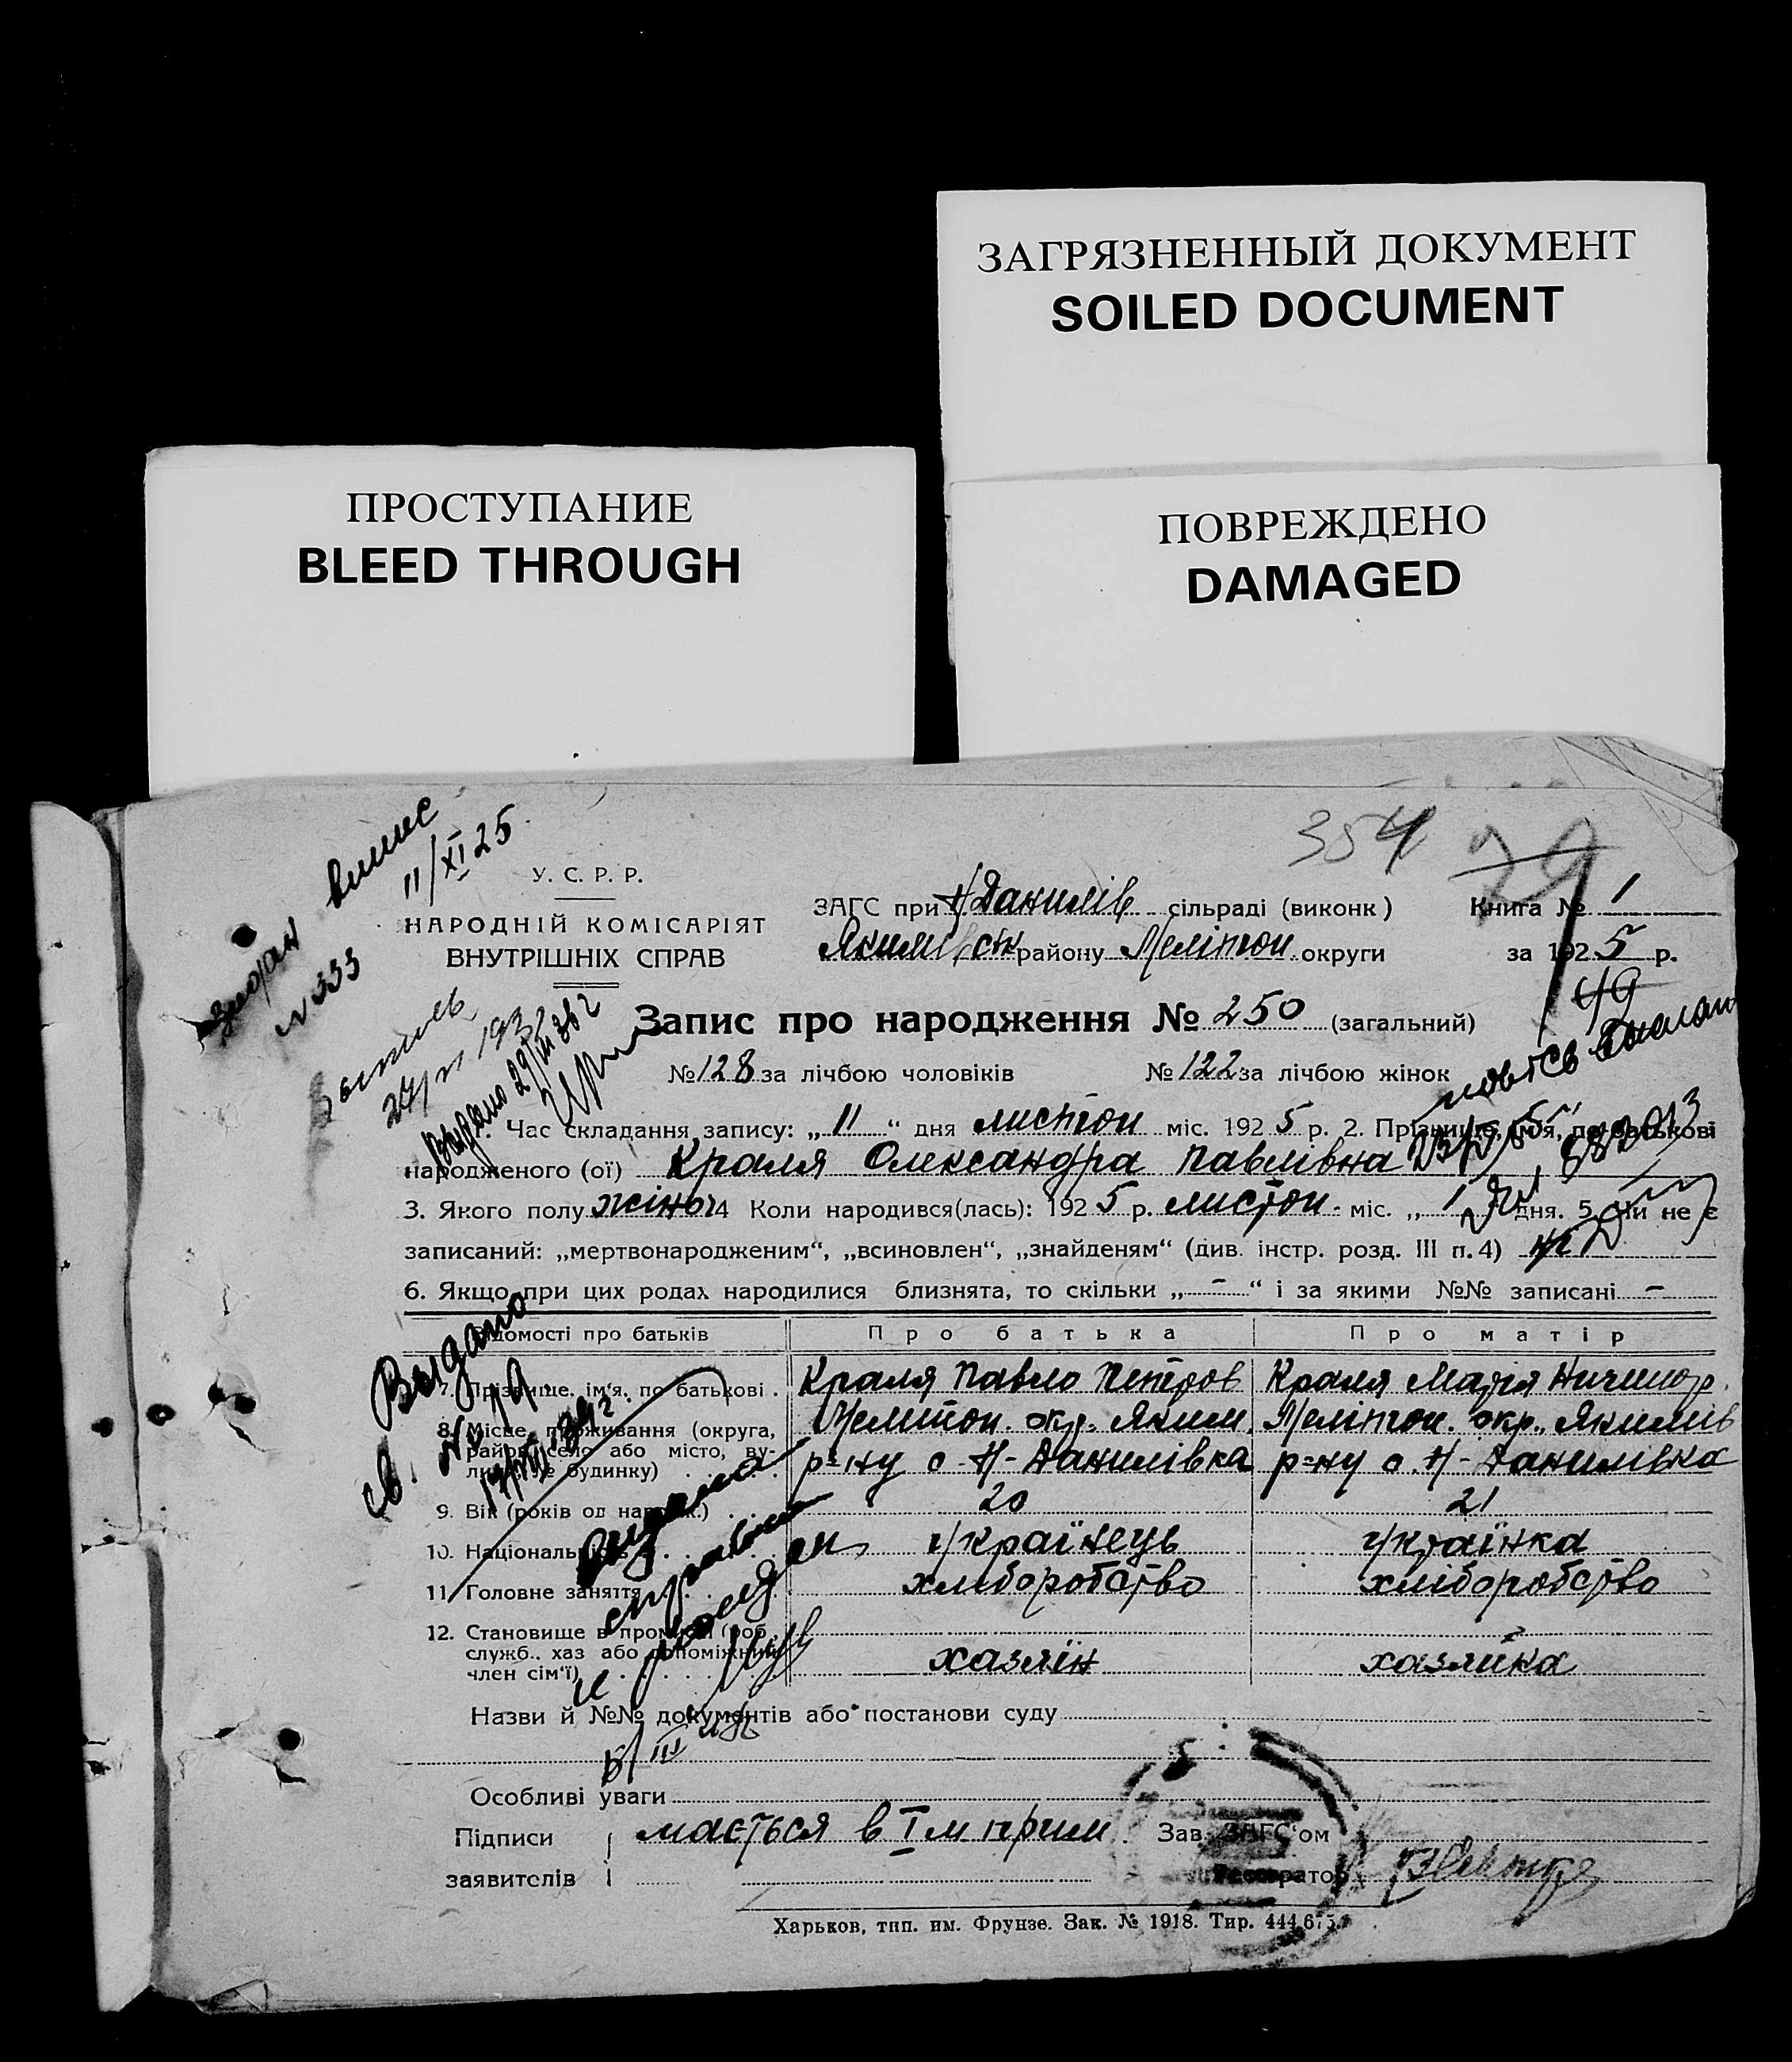 ЗАГРЯЗНЕННЫЙ ДОКУМЕНТ
SOILED DOCUMENT
ПРОСТУПАНИЕ
BLEED THROUGH
ПОВРЕЖДЕНО
DAMAGED
354
11/XI 25
№ 333
У. С. Р. Р.
НАРОДНІЙ КОМІСАРІЯТ
ВНУТРІШНІХ СПРАВ
ЗАГС при Н/Данилів сільраді (виконк)
Книга № 1
Якимівськ району Меліпон округи
за 1925 р.
49
Запис про народження № 250 (загальний)
№ 128 за лічбою чоловіків № 122 за лічбою жінок
Час складання запису: „11“ дня листоп міс. 1925 р. 2. Прізвище, ім'я, по батькові
народженого (ої) Краля Олександра Павлівна
3. Якого полу жіноч 4 Коли народився(лась): 1925 р. листоп. міс. „1 дня. 5. Чи не є
записаний: „мертвонародженим“, „всиновлен“, „знайденям“ (див. інстр. розд. III п. 4) ні
6. Якщо при цих родах народилися близнята, то скільки „-“ і за якими №№ записані -
Відомості про батьків Про батька Про матір
7. Прізвище, ім'я, по батькові . Краля Павло Петров Краля Марія Ничипор.
8. Місце проживання (округа, Меліпон. окр., Яким. Меліпон. окр., Якимів
район, село або місто, ву-
лиця, № будинку) р-ну с. Н-Данилівка р-ну с. Н-Данилівка
9. Вік (років од народж.) 20 21
10. Національність українець українка
11. Головне заняття хліборобство хліборобство
12. Становище в промислі (роб.,
служб., хаз або допоміжний
член сім'ї) хазяїн хазяйка
Видано
св. №
Назви й №№ документів або постанови суду
Особливі уваги
Підписи
заявителів
мається в І м прим.
Зав. ЗАГС'ом
Реєстратор
Харьков, тип. им. Фрунзе. Зак. № 1918. Тир. 444.675.